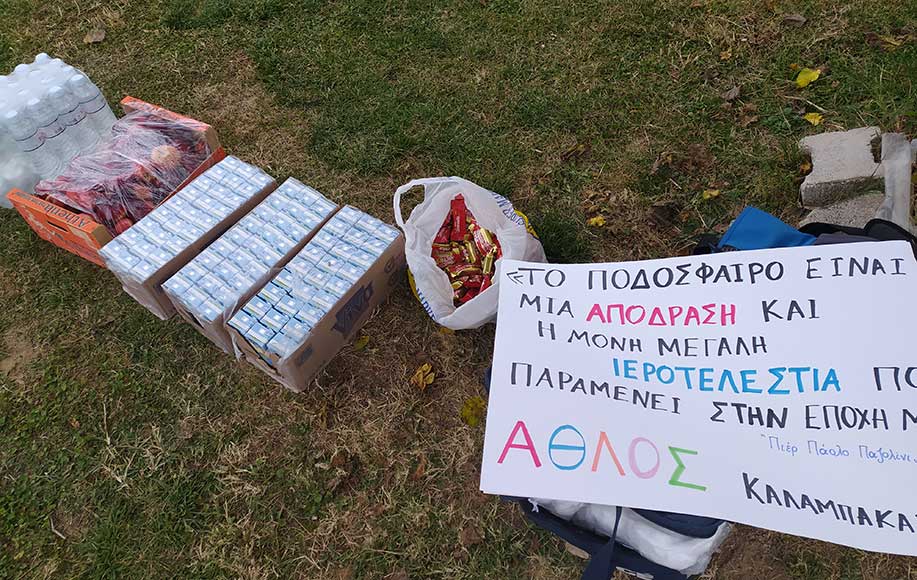 «ΤΟ ΠΟΔΟΣΦΑΙΡΟ ΕΙΝΑΙ
ΜΙΑ ΑΠΟΔΡΑΣΗ ΚΑΙ
Η ΜΟΝΗ ΜΕΓΑΛΗ
ΙΕΡΟΤΕΛΕΣΤΙΑ ΠΟ
ΠΑΡΑΜΕΝΕΙ ΣΤΗΝ ΕΠΟΧΗ Μ
Πιέρ Πάολο Παζολίνι
ΑΘΛΟΣ
ΚΑΛΑΜΠΑΚΑ